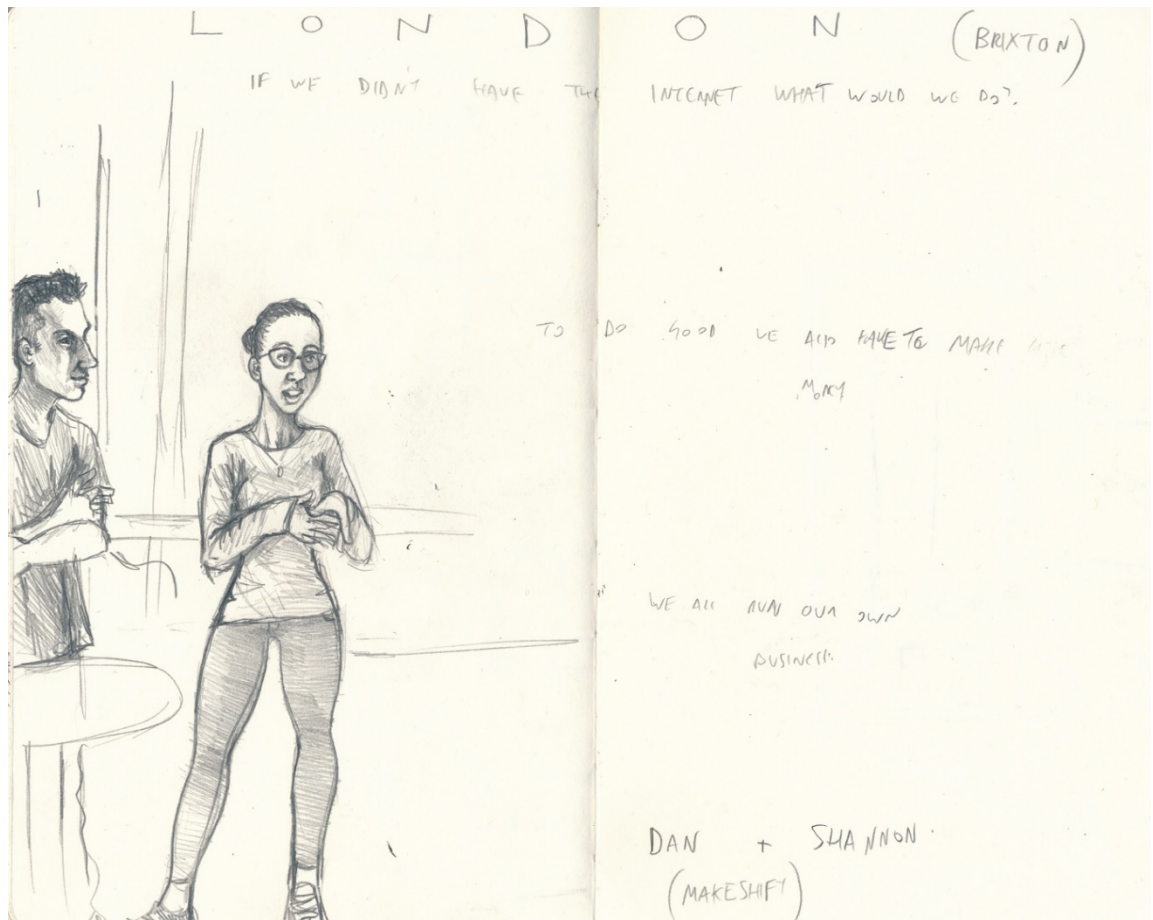 LONDON (BRIXTON)
IF WE DIDN'T HAVE THE INTERNET WHAT WOULD WE DO?
TO DO GOOD WE ALSO HAVE TO MAKE
MONEY
WE ALL RUN OUR OWN
BUSINESS.
DAN + SHANNON
(MAKESHIFT)